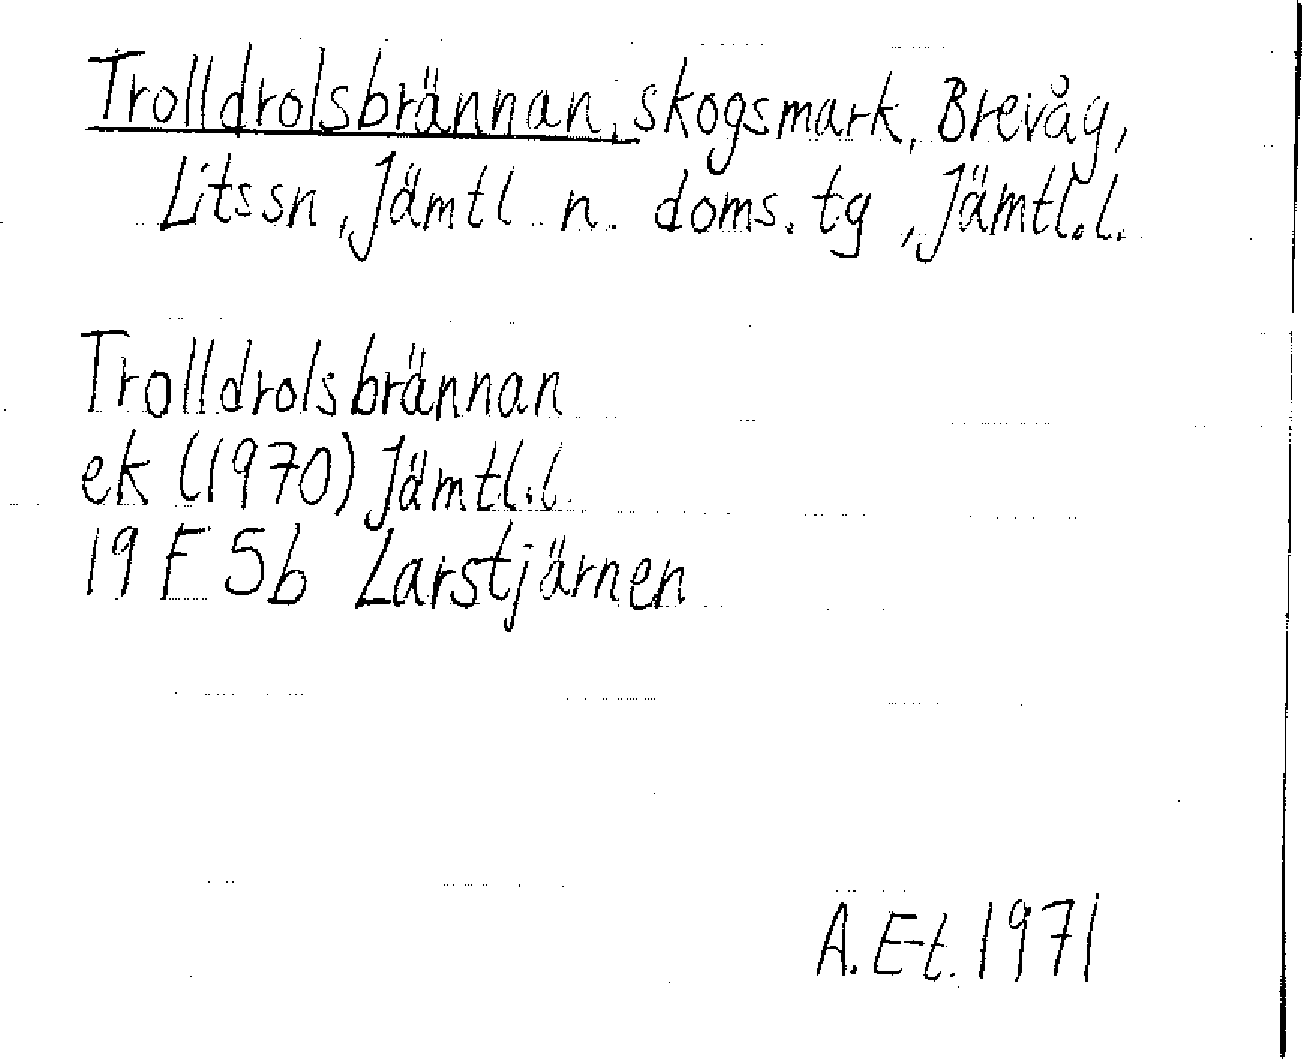 Trolldrolsbrännan, skogsmark, Brevåg,
Lits sn, Jämtl n. doms. tg, Jämtl.l.
Trolldrolsbrännan
ek (1970) Jämtl.l.
19 F 5b Larstjärnen
A. E-t. 1971